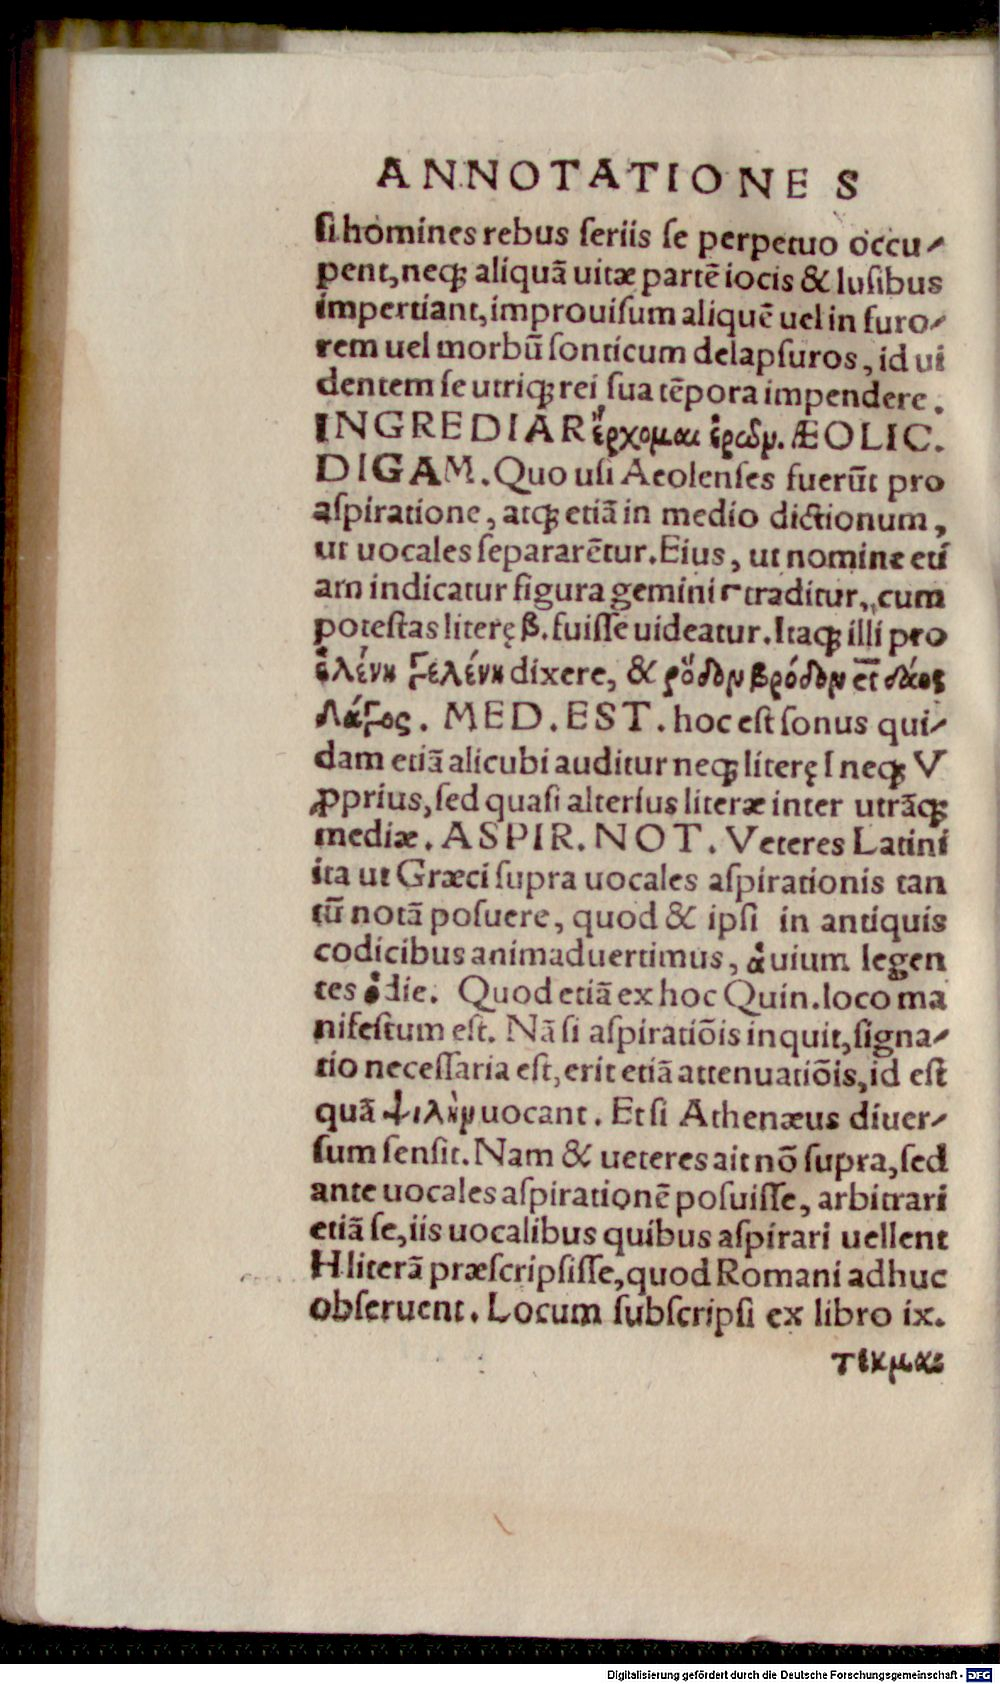 ANNOTATIONES
si homines rebus seriis se perpetuo occu-
pent, neqꝫ aliquã uitæ partẽ iocis & lusibus
impertiant, improuisum aliquẽ uel in furo-
rem uel morbũ sonticum delapsuros, id ui
dentem se utriqꝫ rei sua tẽpora impendere.
INGREDIAR ἔρχομαι ἐρῶν. ÆOLIC.
DIGAM. Quo usi Aeolenses fuerũt pro
aspiratione, atqꝫ etiã in medio dictionum,
ut uocales separarẽtur. Eius, ut nomine eti
am indicatur figura gemini Γ traditur, cum
potestas literę β. fuisse uideatur. Itaqꝫ illi pro
ἑλένη Ϝελένη dixere, & ῥόδον βρόδον et̃ δάος
δάϜος. MED. EST. hoc est sonus qui-
dam etiã alicubi auditur neqꝫ literę I neqꝫ V
ꝓprius, sed quasi alterius literæ inter utrãqꝫ
mediæ. ASPIR. NOT. Veteres Latini
ita ut Græci supra uocales aspirationis tan
tũ notã posuere, quod & ipsi in antiquis
codicibus animaduertimus, ἁuium legen
tes ὁdie. Quod etiã ex hoc Quin. loco ma
nifestum est. Nã si aspiratiõis inquit, signa-
tio necessaria est, erit etiã attenuatiõis, id est
quã ψιλὴν uocant. Etsi Athenæus diuer-
sum sensit. Nam & ueteres ait nõ supra, sed
ante uocales aspirationẽ posuisse, arbitrari
etiã se, iis uocalibus quibus aspirari uellent
H literã præscripsisse, quod Romani adhuc
obseruent. Locum subscripsi ex libro ix.
τεκμαι
Digitalisierung gefördert durch die Deutsche Forschungsgemeinschaft - DFG